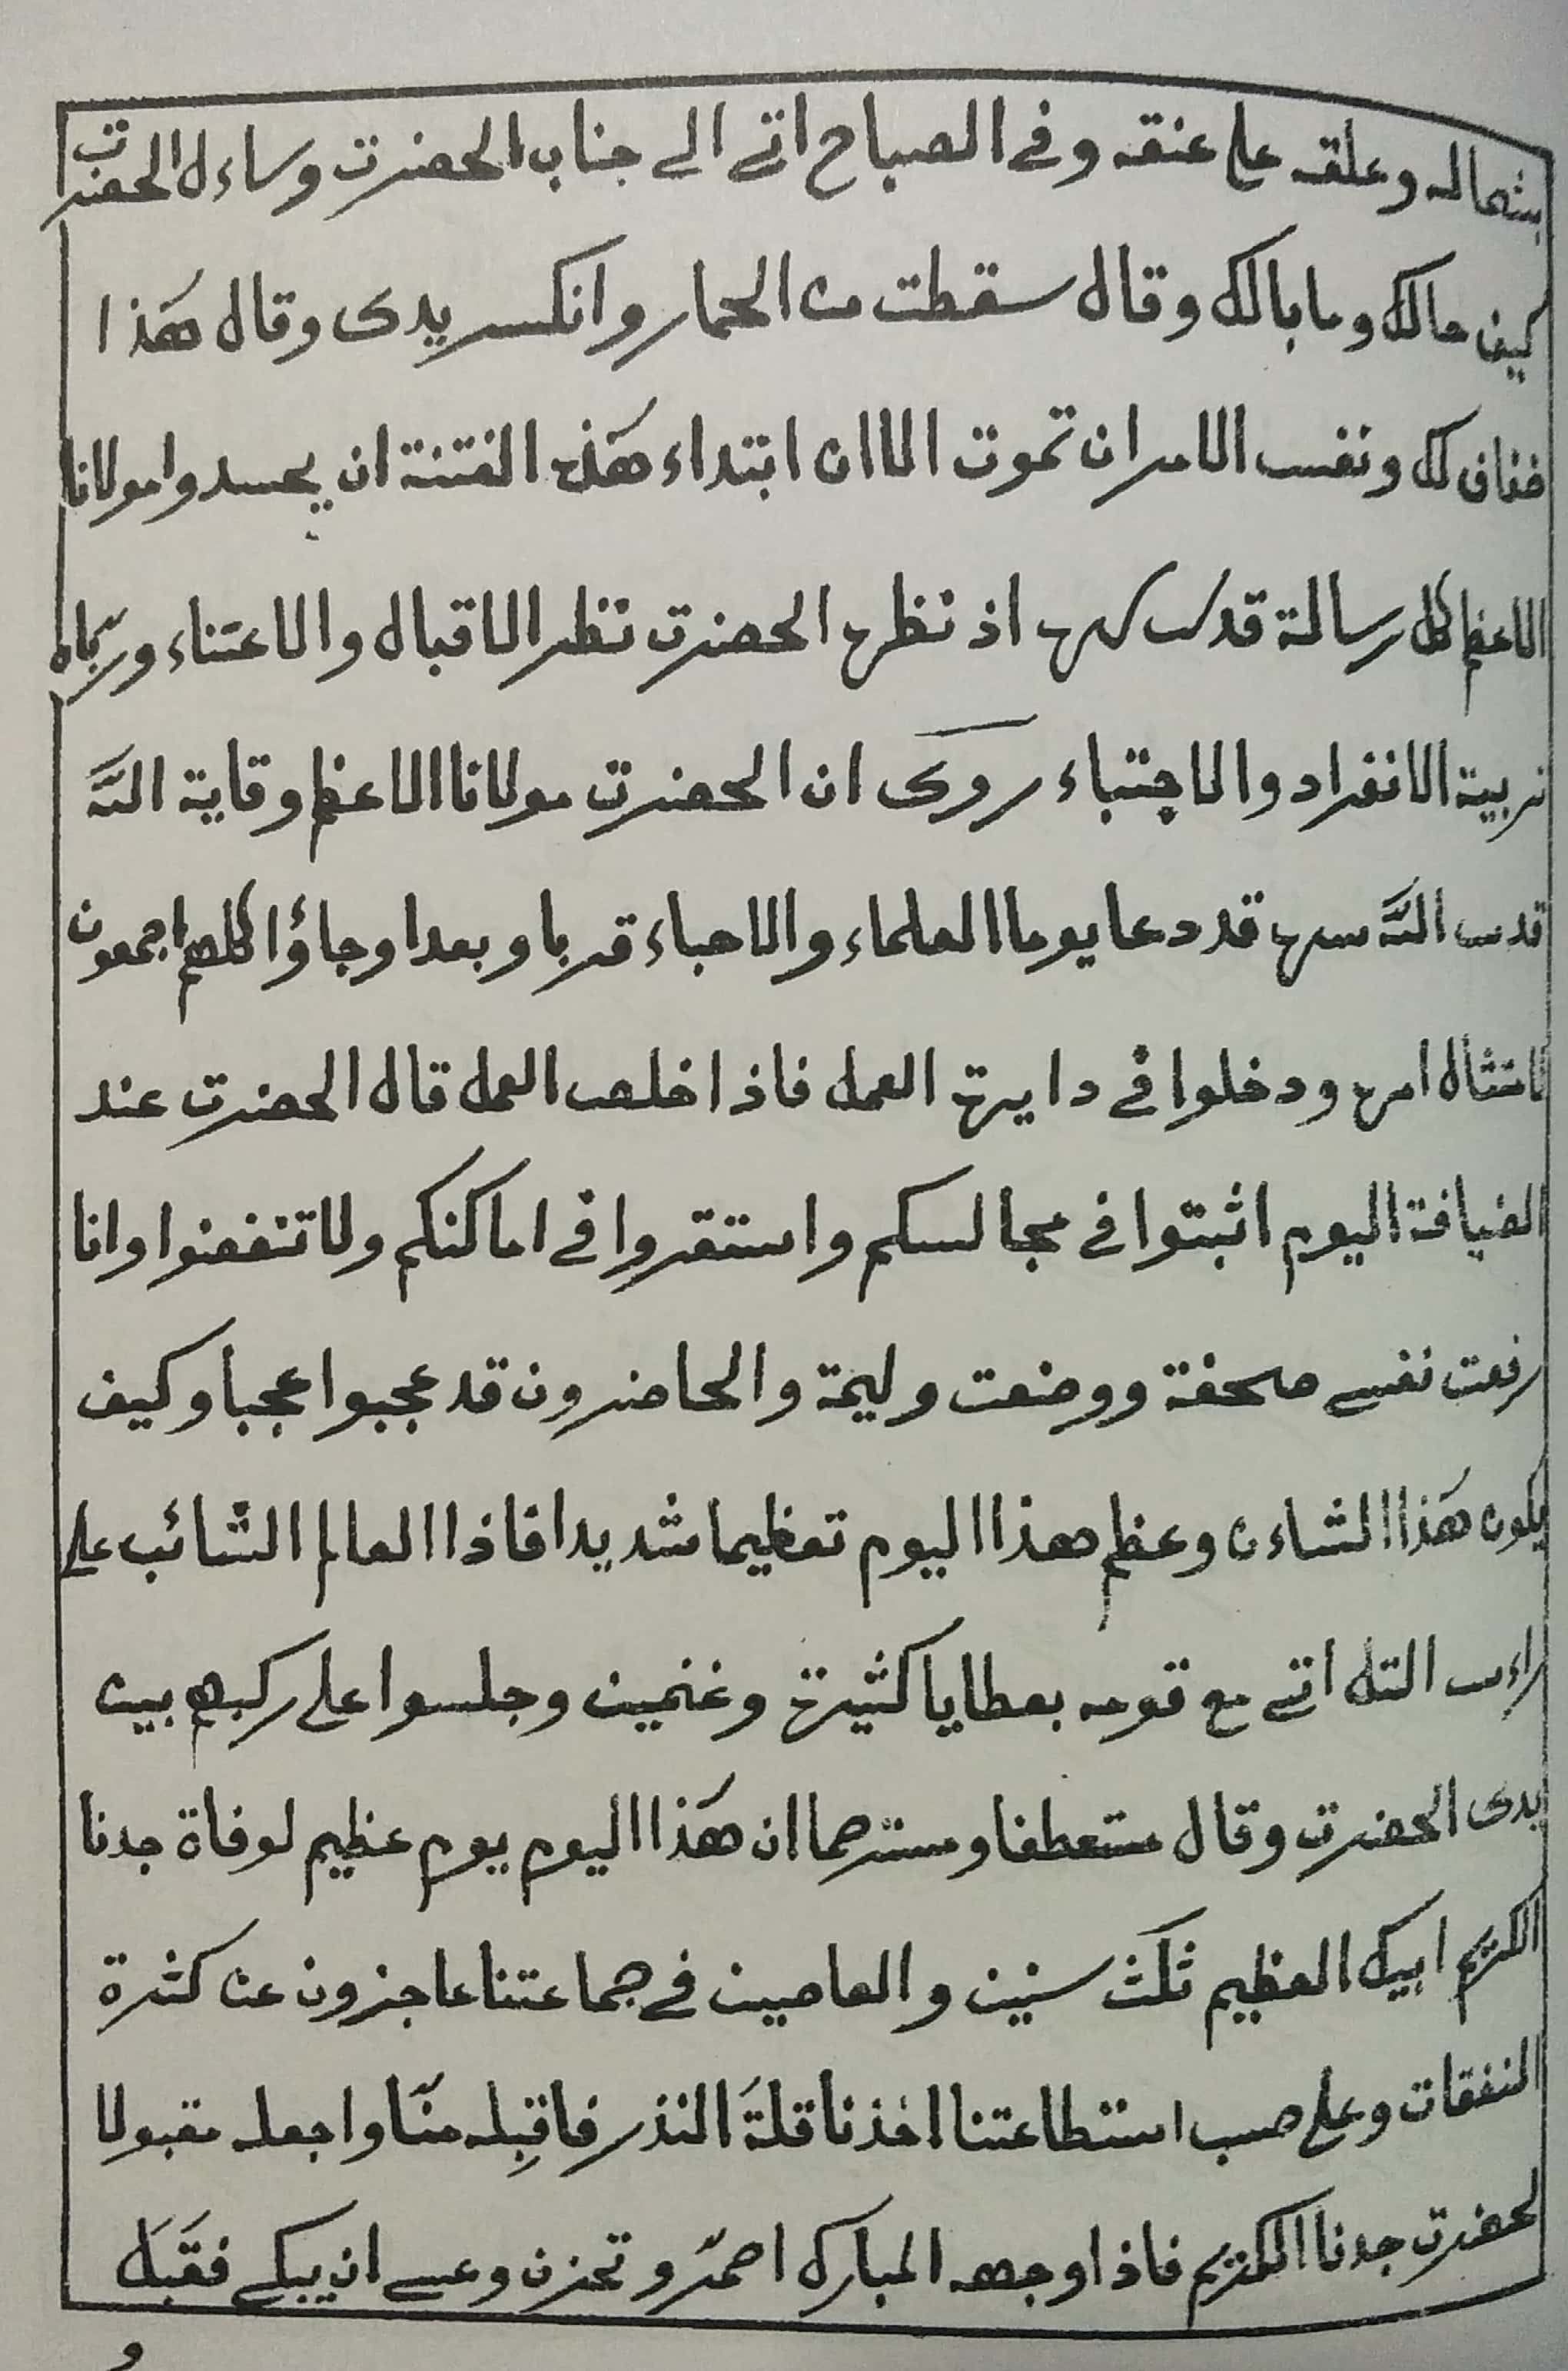 بشماله وعلقه على عنقه وفي الصباح اتى الى جناب الحضرت وساءل الحضرت
كيف حالك وما بالك وقال سقطت من الحمار وانكسر يدى وقال هَذا
فخاف لك ونفس الامر ان تموت الاان ابتداء هَذه الفتنة ان يحسدوا مولانا
الاعظم كل رسالة قدس سره اذ نظره الحضرت نظر الاقبال والاعتناء وربّاه
تربية الانفراد والاجتباء روى ان الحضرت مولانا الاعظم وقاية اللَّه
قدس اللَّه سره قد دعا يوما العلماء والاحباء قربا وبعدا وجاؤا كلهم اجمعون
لامتثال امره ودخلوا في دايرة العمل فاذا خلص العمل قال الحضرت عند
الضيافة اليوم اثبتوا في مجالسكم واستقروا في اماكنكم ولا تنفضوا وانا
رفعت نفسي صحفة ووضعت وليمة والحاضرون قد عجبوا عجبا وكيف
يكون هَذا الشاءن وعظم هذا اليوم تعظيما شديدا فاذا العالم الشائب على
راءس التل اتى مع قومه بعطايا كثيرة وغنمين وجلسوا على ركبهم بين
يدى الحضرت وقال مستعطفا ومسترحما ان هَذا اليوم يوم عظيم لوفاة جدنا
الكريم ابيك العظيم ثلَث سنين والعاصين في جماعتنا عاجزون عن كثرة
النفقات وعلى حسب استطاعتنا اخذنا قلةَ النذر فاقبِله منّا واجعله مقبولا
لحضرت جدنا الكريم فاذا وجهه المبارك احمرّ وتحزن وعسى ان يبكي فقَبَلَ
و